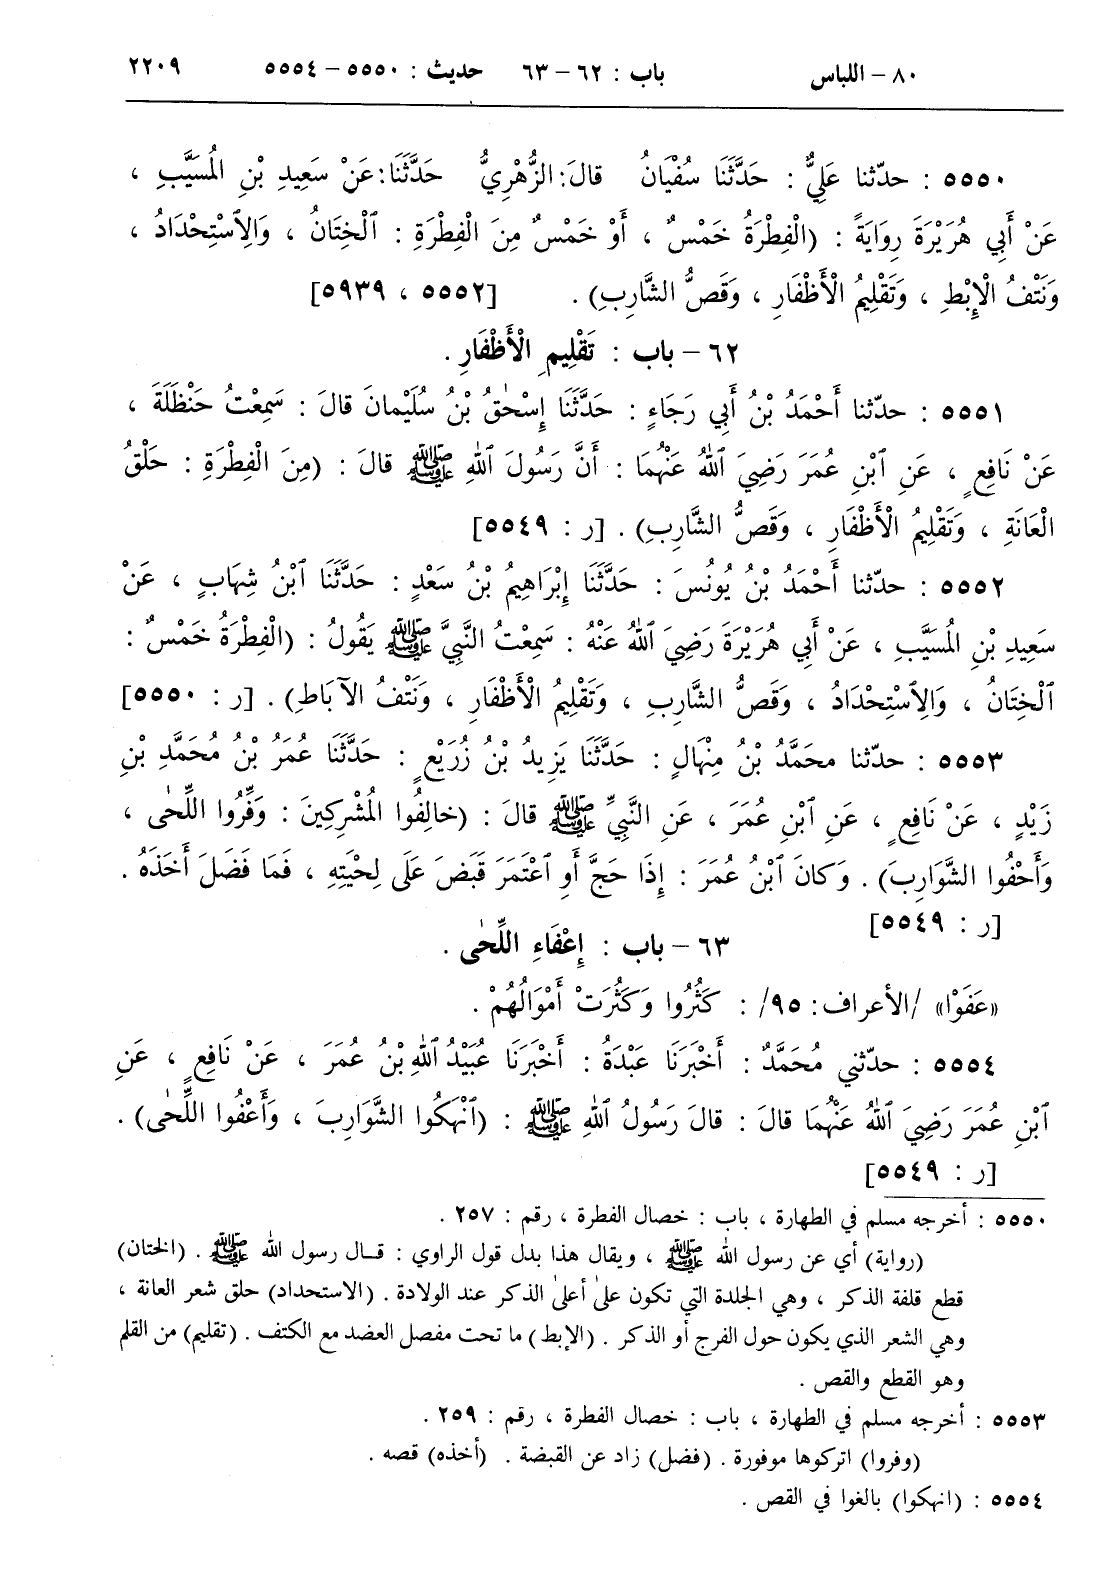 ٨٠ – اللباس باب : ٦٢ – ٦٣ حديث : ٥٥٥٠ – ٥٥٥٤ ٢٢٠٩
٥٥٥٠ : حدّثنا عَلِيٌّ : حَدَّثَنَا سُفْيَانُ قالَ: الزُّهْرِيُّ حَدَّثَنَا: عَنْ سَعِيدِ بْنِ الْمُسَيَّبِ ،
عَنْ أَبِي هُرَيْرَةَ رِوَايَةً : (الْفِطْرَةُ خَمْسٌ ، أَوْ خَمْسٌ مِنَ الْفِطْرَةِ : ٱلْخِتَانُ ، وَالِٱسْتِحْدَادُ ،
وَنَتْفُ الْإِبْطِ ، وَتَقْلِيمُ الْأَظْفَارِ ، وَقَصُّ الشَّارِبِ) . [٥٥٥٢ ، ٥٩٣٩]
٦٢ – باب : تَقْلِيمِ الْأَظْفَارِ .
٥٥٥١ : حدّثنا أَحْمَدُ بْنُ أَبِي رَجَاءٍ : حَدَّثَنَا إِسْحٰقُ بْنُ سُلَيْمانَ قالَ : سَمِعْتُ حَنْظَلَةَ ،
عَنْ نَافِعٍ ، عَنِ ٱبْنِ عُمَرَ رَضِيَ ٱللّٰهُ عَنْهُمَا : أَنَّ رَسُولَ ٱللهِ ﷺ قالَ : (مِنَ الْفِطْرَةِ : حَلْقُ
الْعَانَةِ ، وَتَقْلِيمُ الْأَظْفَارِ ، وَقَصُّ الشَّارِبِ) . [ر : ٥٥٤٩]
٥٥٥٢ : حدّثنا أَحْمَدُ بْنُ يُونُسَ : حَدَّثَنَا إِبْرَاهِيمُ بْنُ سَعْدٍ : حَدَّثَنَا ٱبْنُ شِهَابٍ ، عَنْ
سَعِيدِ بْنِ الْمُسَيَّبِ ، عَنْ أَبِي هُرَيْرَةَ رَضِيَ ٱللّٰهُ عَنْهُ : سَمِعْتُ النَّبِيَّ ﷺ يَقُولُ : (الْفِطْرَةُ خَمْسٌ :
ٱلْخِتَانُ ، وَالِٱسْتِحْدَادُ ، وَقَصُّ الشَّارِبِ ، وَتَقْلِيمُ الْأَظْفَارِ ، وَنَتْفُ الآبَاطِ) . [ر : ٥٥٥٠]
٥٥٥٣ : حدّثنا محمَّدُ بْنُ مِنْهَالٍ : حَدَّثَنَا يَزِيدُ بْنُ زُرَيْعٍ : حَدَّثَنَا عُمَرُ بْنُ مُحَمَّدِ بْنِ
زَيْدٍ ، عَنْ نَافِعٍ ، عَنِ ٱبْنِ عُمَرَ ، عَنِ النَّبِيِّ ﷺ قالَ : (خالِفُوا الْمُشْرِكِينَ : وَفِّرُوا اللِّحٰى ،
وَأَحْفُوا الشَّوَارِبَ) . وَكانَ ٱبْنُ عُمَرَ : إِذَا حَجَّ أَوِ ٱعْتَمَرَ قَبَضَ عَلَى لِحْيَتِهِ ، فَمَا فَضَلَ أَخَذَهُ .
[ر : ٥٥٤٩]
٦٣ – باب : إِعْفَاءِ اللِّحٰى .
«عَفَوْا» /الأعراف: ٩٥/ : كَثُرُوا وَكَثُرَتْ أَمْوَالُهُمْ .
٥٥٥٤ : حدّثني مُحَمَّدٌ : أَخْبَرَنَا عَبْدَةُ : أَخْبَرَنَا عُبَيْدُ ٱللهِ بْنُ عُمَرَ ، عَنْ نَافِعٍ ، عَنِ
ٱبْنِ عُمَرَ رَضِيَ ٱللّٰهُ عَنْهُمَا قالَ : قالَ رَسُولُ ٱللهِ ﷺ : (ٱنْهَكُوا الشَّوَارِبَ ، وَأَعْفُوا اللِّحٰى) .
[ر : ٥٥٤٩]
٥٥٥٠ : أخرجه مسلم في الطهارة ، باب : خصال الفطرة ، رقم : ٢٥٧ .
(رواية) أي عن رسول الله ﷺ ، ويقال هذا بدل قول الراوي : قـال رسول الله ﷺ . (الختان)
قطع قلفة الذكر ، وهي الجلدة التي تكون على أعلى الذكر عند الولادة . (الاستحداد) حلق شعر العانة ،
وهي الشعر الذي يكون حول الفرج أو الذكر . (الإبط) ما تحت مفصل العضد مع الكتف . (تقليم) من القلم
وهو القطع والقص .
٥٥٥٣ : أخرجه مسلم في الطهارة ، باب : خصال الفطرة ، رقم : ٢٥٩ .
(وفروا) اتركوها موفورة . (فضل) زاد عن القبضة . (أخذه) قصه .
٥٥٥٤ : (انهكوا) بالغوا في القص .